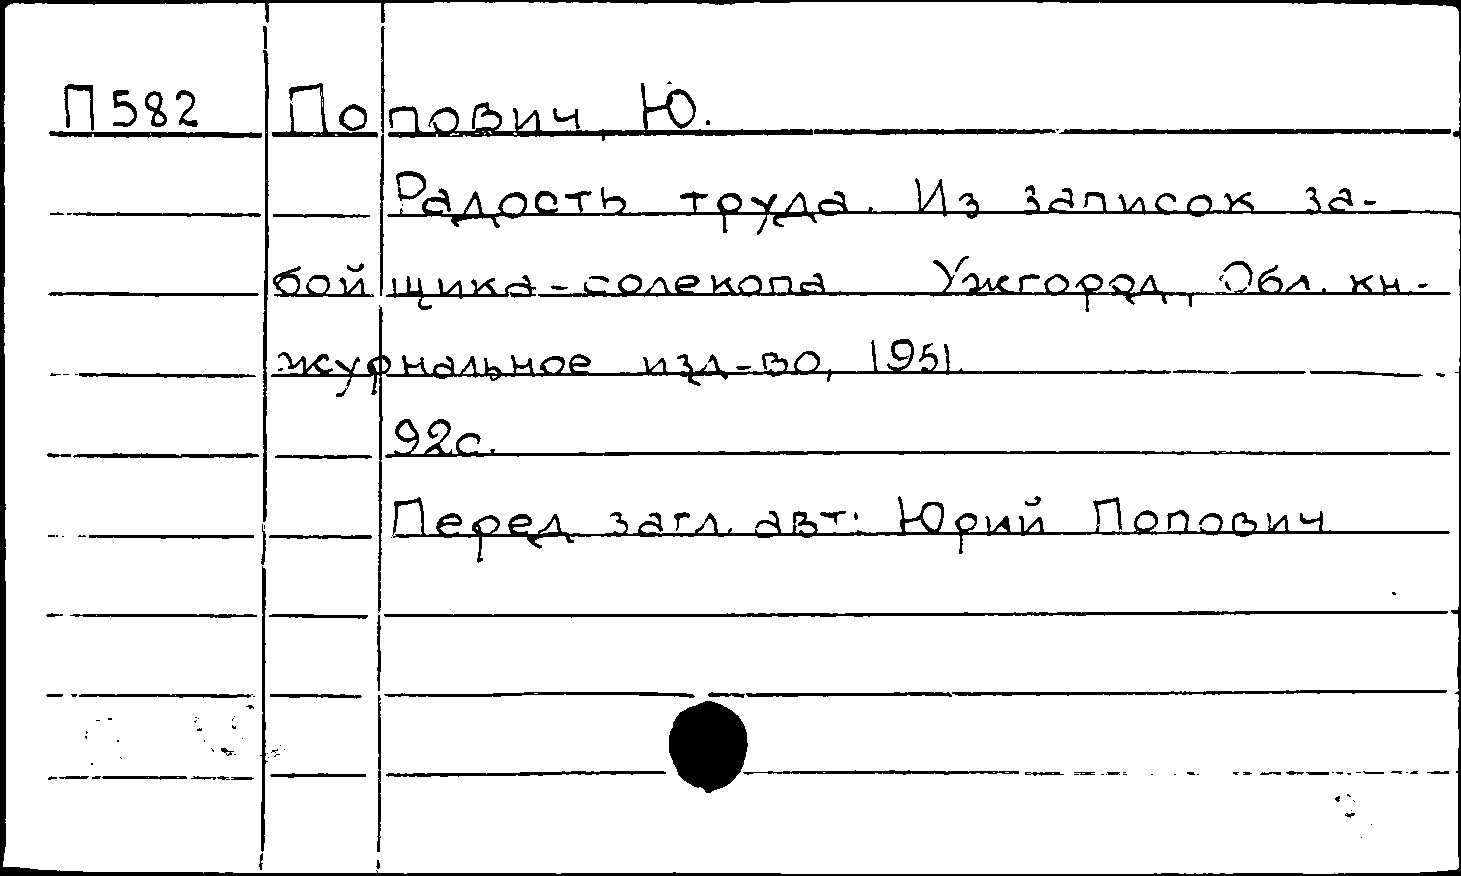 П582 Попович, Ю.
Радость труда. Из записок за-
бойщика-солекопа Ужгород, Обл. кн.-
журнальное изд-во, 1951.
92с.
Перед загл. авт.: Юрий Попович